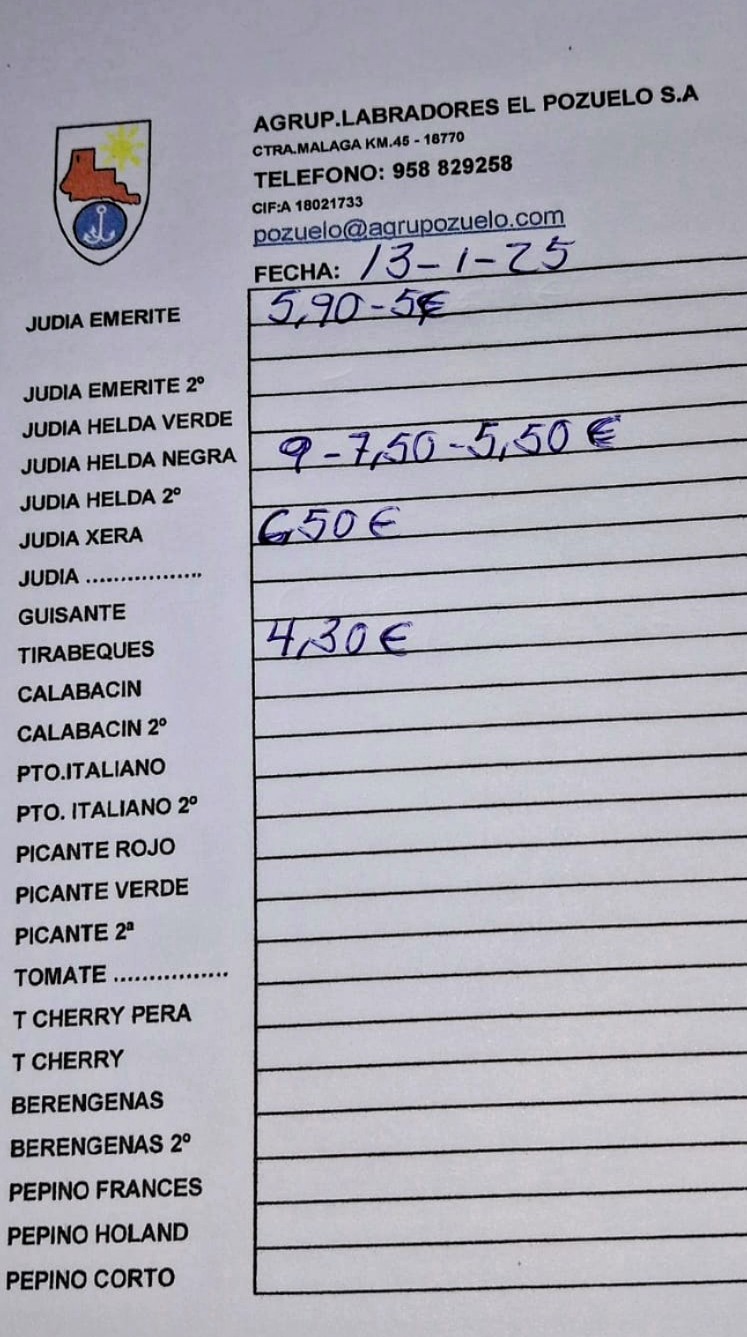 AGRUP.LABRADORES EL POZUELO S.A
CTRA.MALAGA KM.45 - 18770
TELEFONO: 958 829258
CIF:A 18021733
pozuelo@agrupozuelo.com
FECHA: 13-1-25
JUDIA EMERITE 5,90-5€
JUDIA EMERITE 2º
JUDIA HELDA VERDE
JUDIA HELDA NEGRA 9-7,50-5,50€
JUDIA HELDA 2º
JUDIA XERA 6,50€
JUDIA .................
GUISANTE
TIRABEQUES 4,30€
CALABACIN
CALABACIN 2º
PTO.ITALIANO
PTO. ITALIANO 2º
PICANTE ROJO
PICANTE VERDE
PICANTE 2ª
TOMATE ................
T CHERRY PERA
T CHERRY
BERENGENAS
BERENGENAS 2º
PEPINO FRANCES
PEPINO HOLAND
PEPINO CORTO